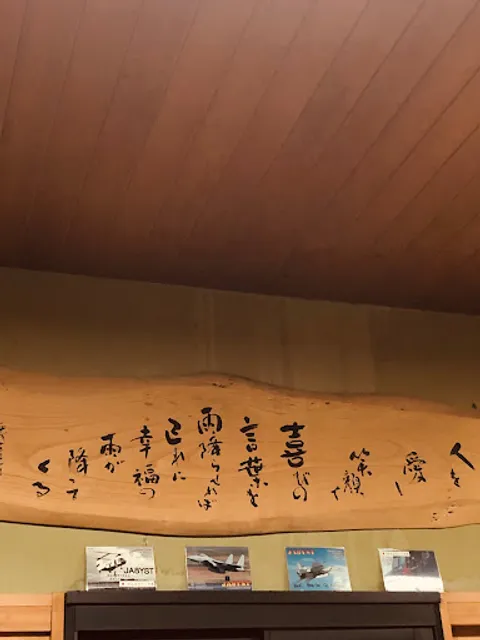 人を
愛し
笑顔で
喜びの
言葉を
雨降らせれば
己れに
幸福の
雨が
降って
くる
JABYST